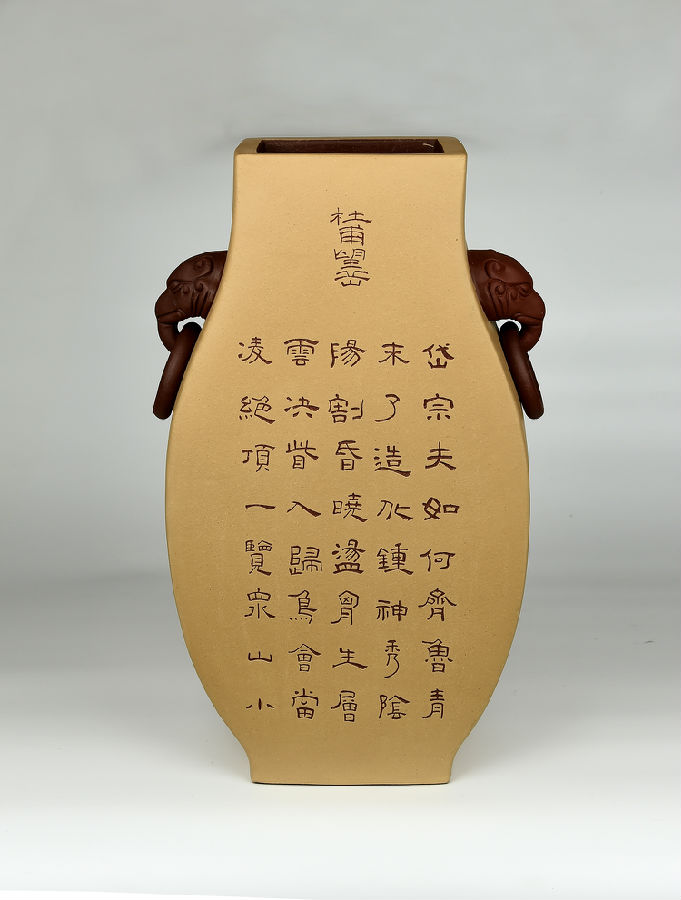 杜甫望岳
岱宗夫如何齊魯青
未了造化鍾神秀陰
陽割昏曉盪胷生層
雲決眥入歸鳥會當
凌絶頂一覽衆山小